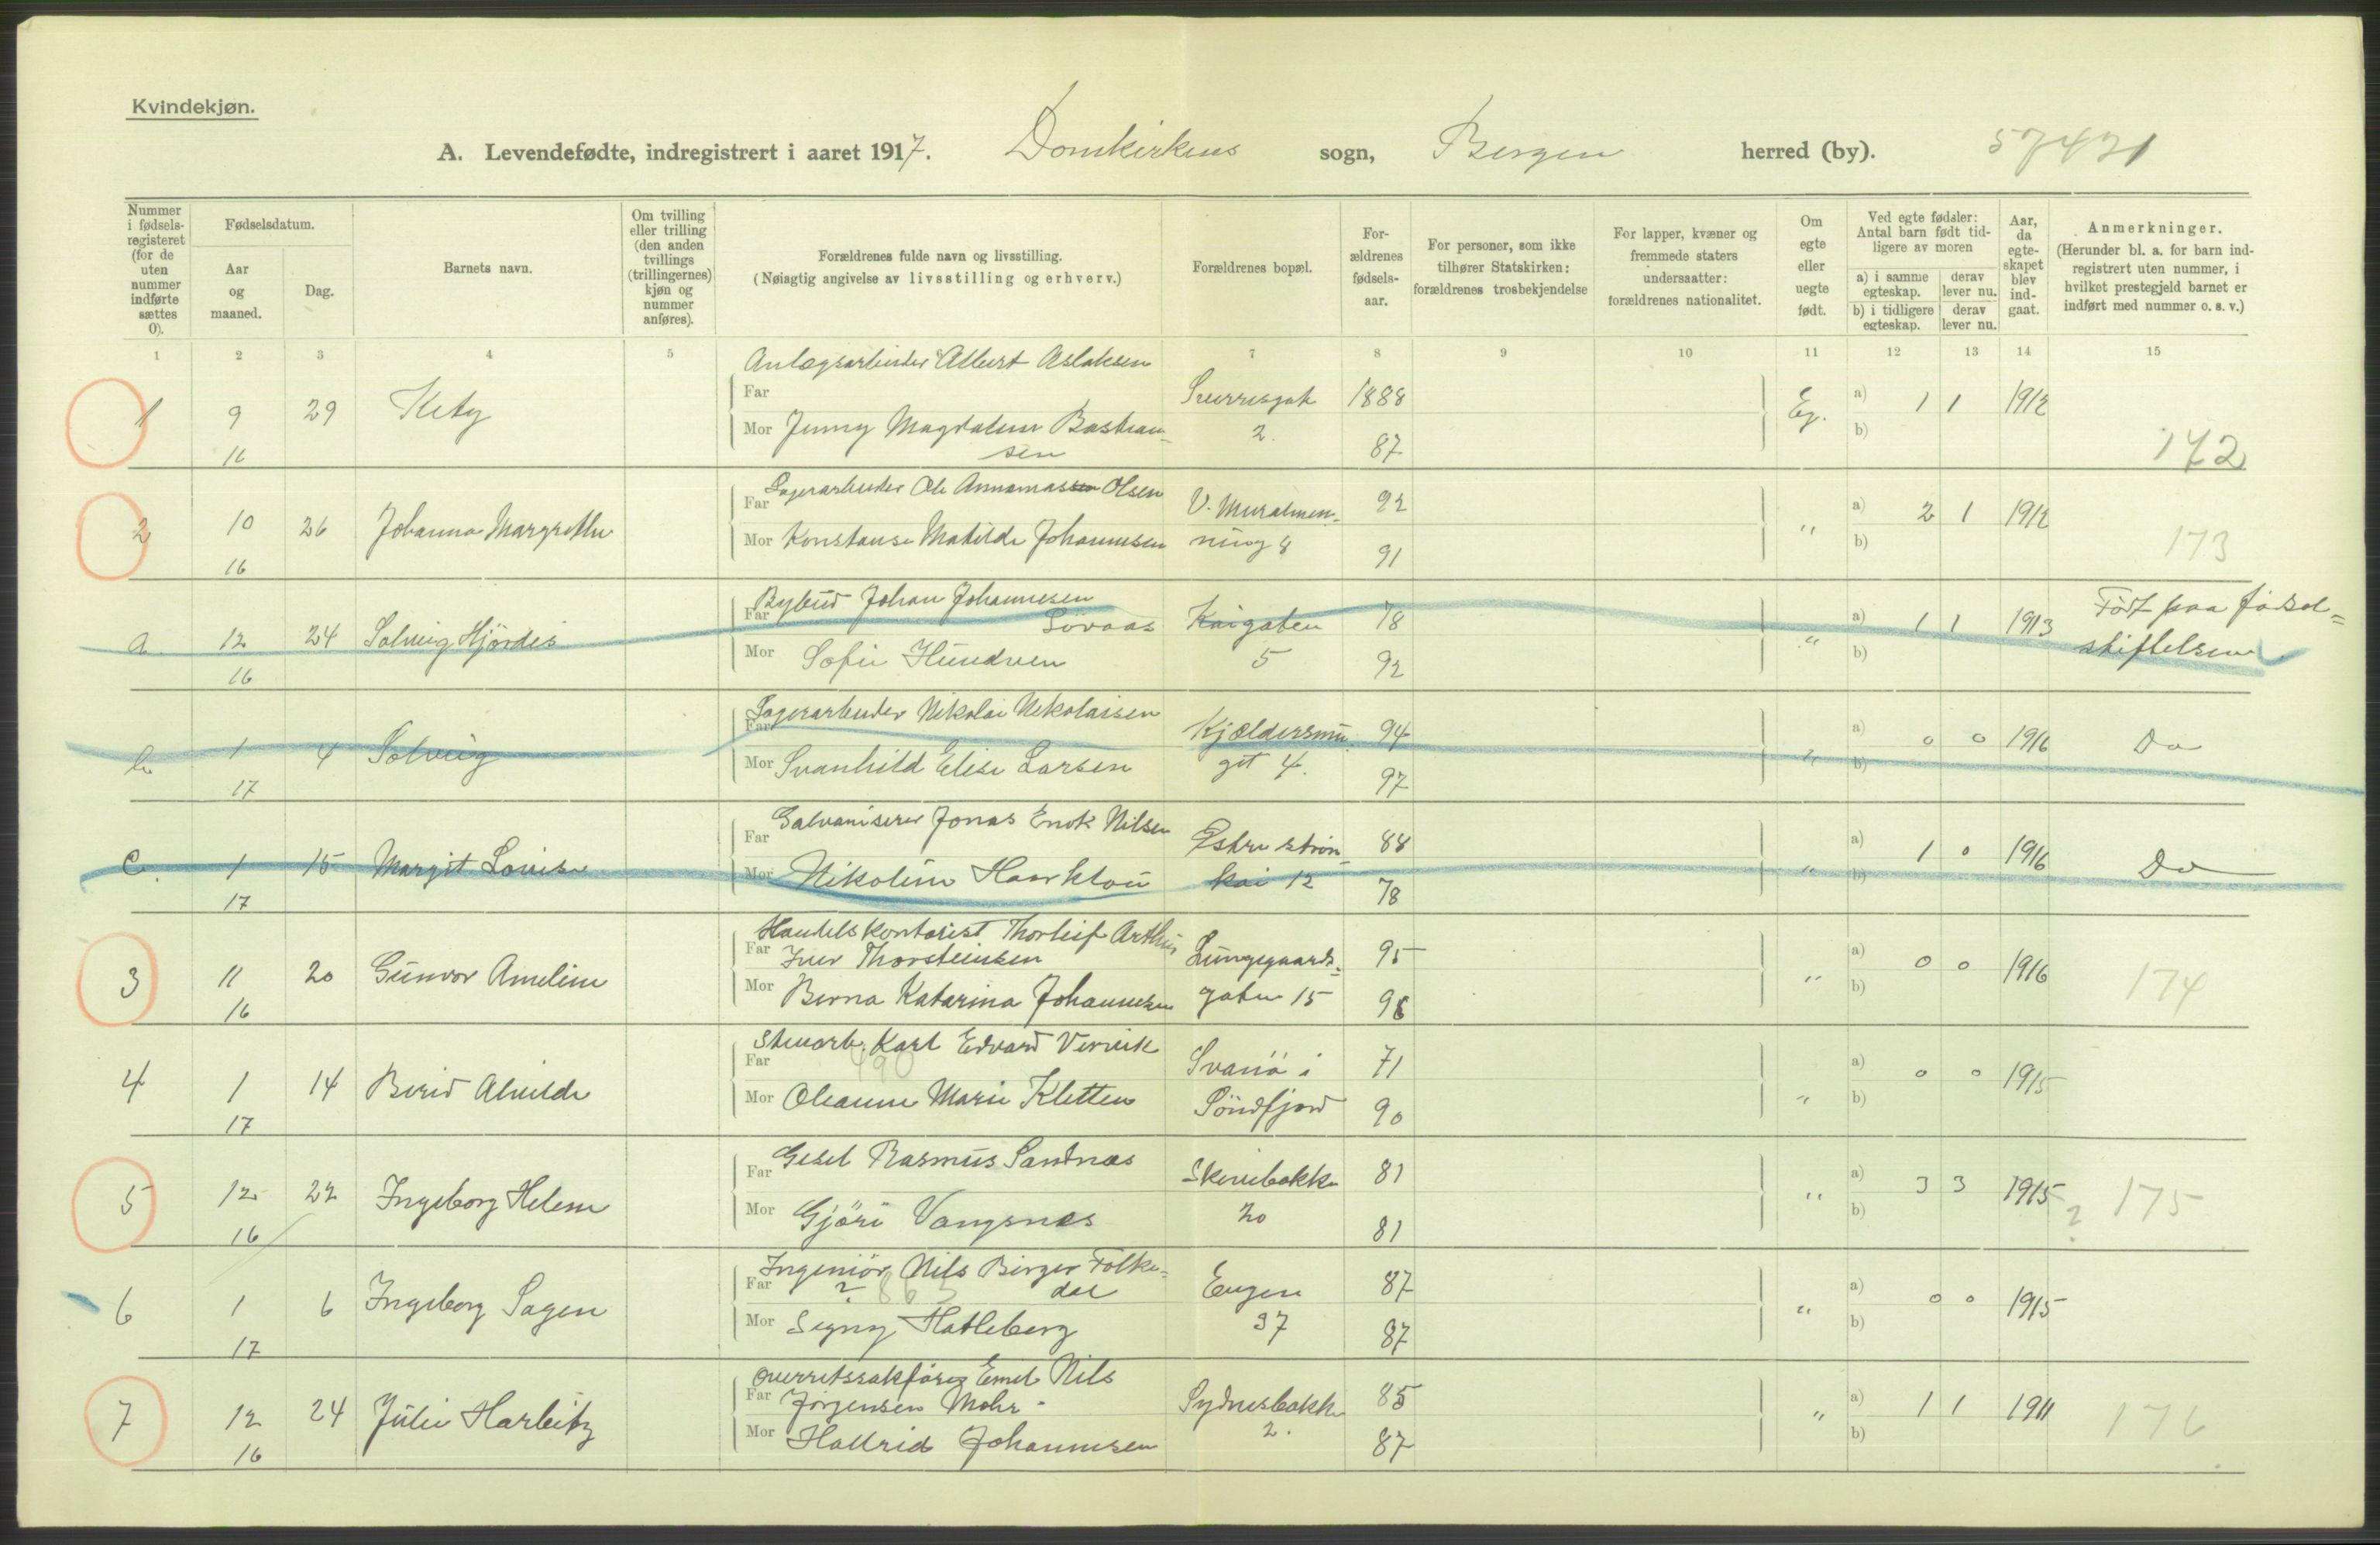 Kvindekjøn.
A. Levendefødte, indregistrert i aaret 1917. Domkirkens sogn, Bergen herred (by). 57421
Nummer i fødsels-registeret (for de uten nummer indførte sættes 0).
Fødselsdatum.
Aar og maaned.
Dag.
Barnets navn.
Om tvilling eller trilling (den anden tvillings (trillingernes) kjøn og nummer anføres).
Forældrenes fulde navn og livsstilling.
(Nøiagtig angivelse av livsstilling og erhverv.)
Forældrenes bopæl.
For-ældrenes fødsels-aar.
For personer, som ikke tilhører Statskirken: forældrenes trosbekjendelse
For lapper, kvæner og fremmede staters undersaatter: forældrenes nationalitet.
Om egte eller uegte født.
Ved egte fødsler: Antal barn født tid-ligere av moren
a) i samme egteskap. derav lever nu.
b) i tidligere egteskap. derav lever nu.
Aar, da egte-skapet blev ind-gaat.
Anmerkninger.
(Herunder bl. a. for barn ind-registrert uten nummer, i hvilket prestegjeld barnet er indført med nummer o. s. v.)
1 2 3 4 5 7 8 9 10 11 12 13 14 15
Anlægsarbeider Albert Aslaksen
1 9 29 Kety Far Sverresgate 1888 Eg. a) 1 1 1912
16 Mor Jenny Magdalene Bastian-
sen 2. 87 b) 172
2 10 26 Johanna Margrethe Far Lagerarbeider Ole Annamassen Olsen V. Muralmen- 92 " a) 2 1 1912
16 Mor Konstanse Matilde Johannesen ning 8 91 b) 173
a 12 24 Solveig Hjördis Far Bybud Johan Johannesen
Lövaas Kaigaten 78 " a) 1 1 1913 Født paa fødsels=
16 Mor Sofie Hundven 5 92 b) stiftelsen
b 1 4 Solveig Far Lagerarbeider Nikolai Nikolaisen Kjældersmu 94 " a) 0 0 1916 Do
17 Mor Svanhild Elise Larsen get 4. 97 b)
c. 1 15 Margit Lovise Far Galvaniserer Jonas Enok Nilsen 88 " a) 1 0 1916 Do
17 Mor Nikoline Haarklau kai 12 78 b)
3 11 20 Gunvor Ameline Far Handelskontorist Thorleif Arthur
Iver Thorsteinsen Lungegaards- 95 " a) 0 0 1916
16 Mor Berna Katarina Johannesen gaten 15 96 b) 174
4 1 14 Berid Alvilde Far Stenarb. Karl Edvard Vervik
490 Svanö i 71 " a) 0 0 1915
17 Mor Oleanne Marie Kletten Söndfjord 90 b)
5 12 22 Ingeborg Helene Far Gesel Rasmus Sandnæs Skivebakke 81 " a) 3 3 1915
16 Mor Gjöri Vangsnes 20 81 b) ? 175
6 1 6 Ingeborg Sagen Far Ingeniör Nils Birger Folke=
? 863 dal Engen 87 " a) 0 0 1915
17 Mor Signy Hatleberg 37 87 b)
7 12 24 Julie Harbitz Far Overretssakförer Emil Nils
Jörgensen Mohr Sydnesbakke 85 " a) 1 1 1911
16 Mor Hallrid Johannesen 2. 87 b) 176